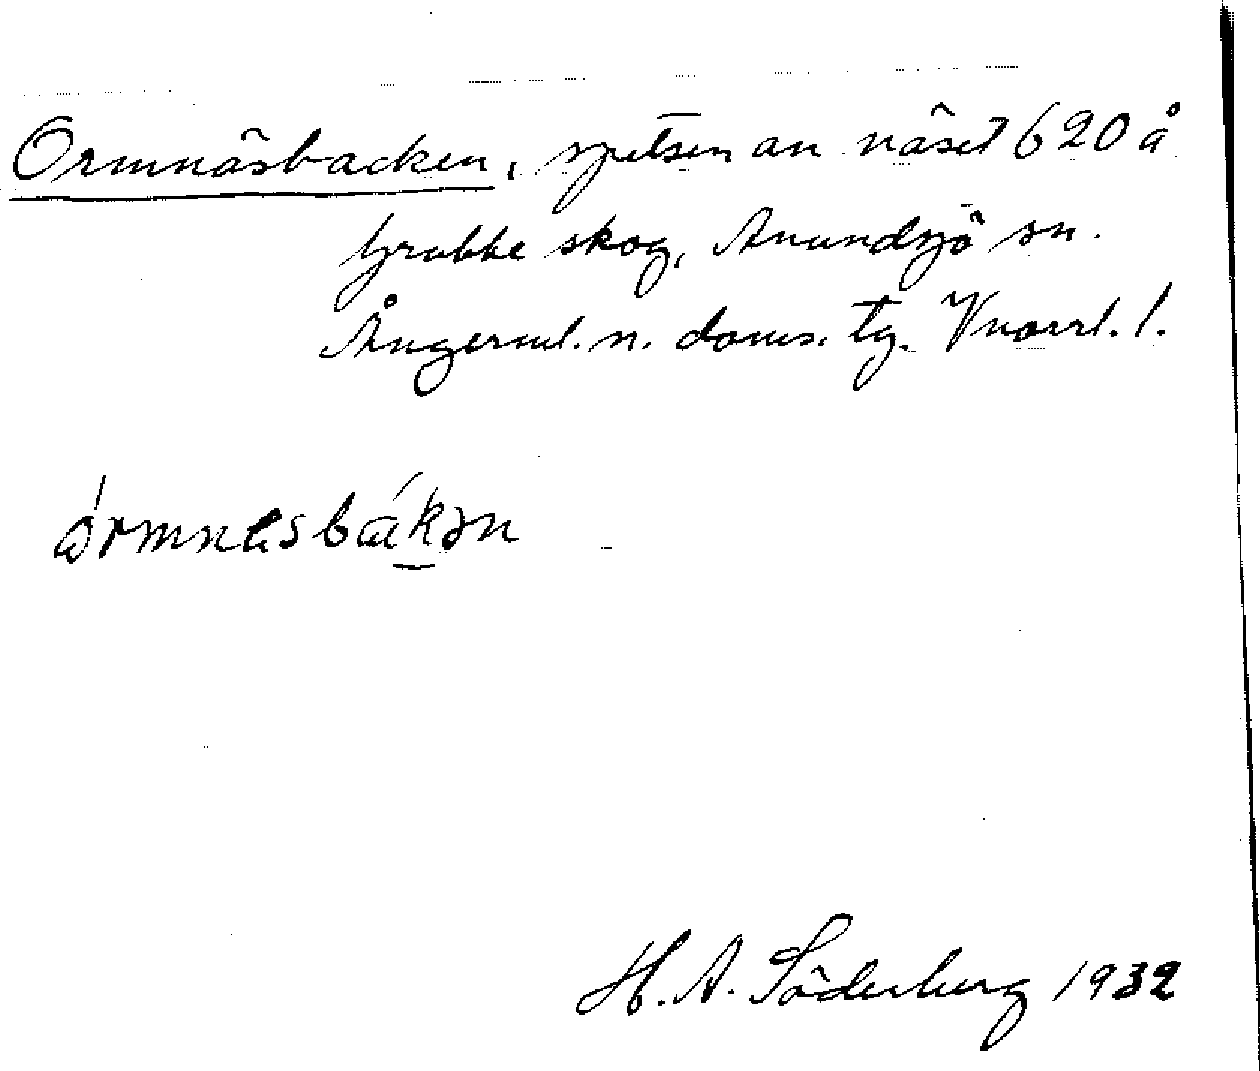 Ormnäsbacken, spetsen av näset 620 å
Grubbe skog, Anundsjö sn.
Ångerml. n. doms. tg. Vnorrl. l.
ormnesbakən
H. A. Söderberg 1932